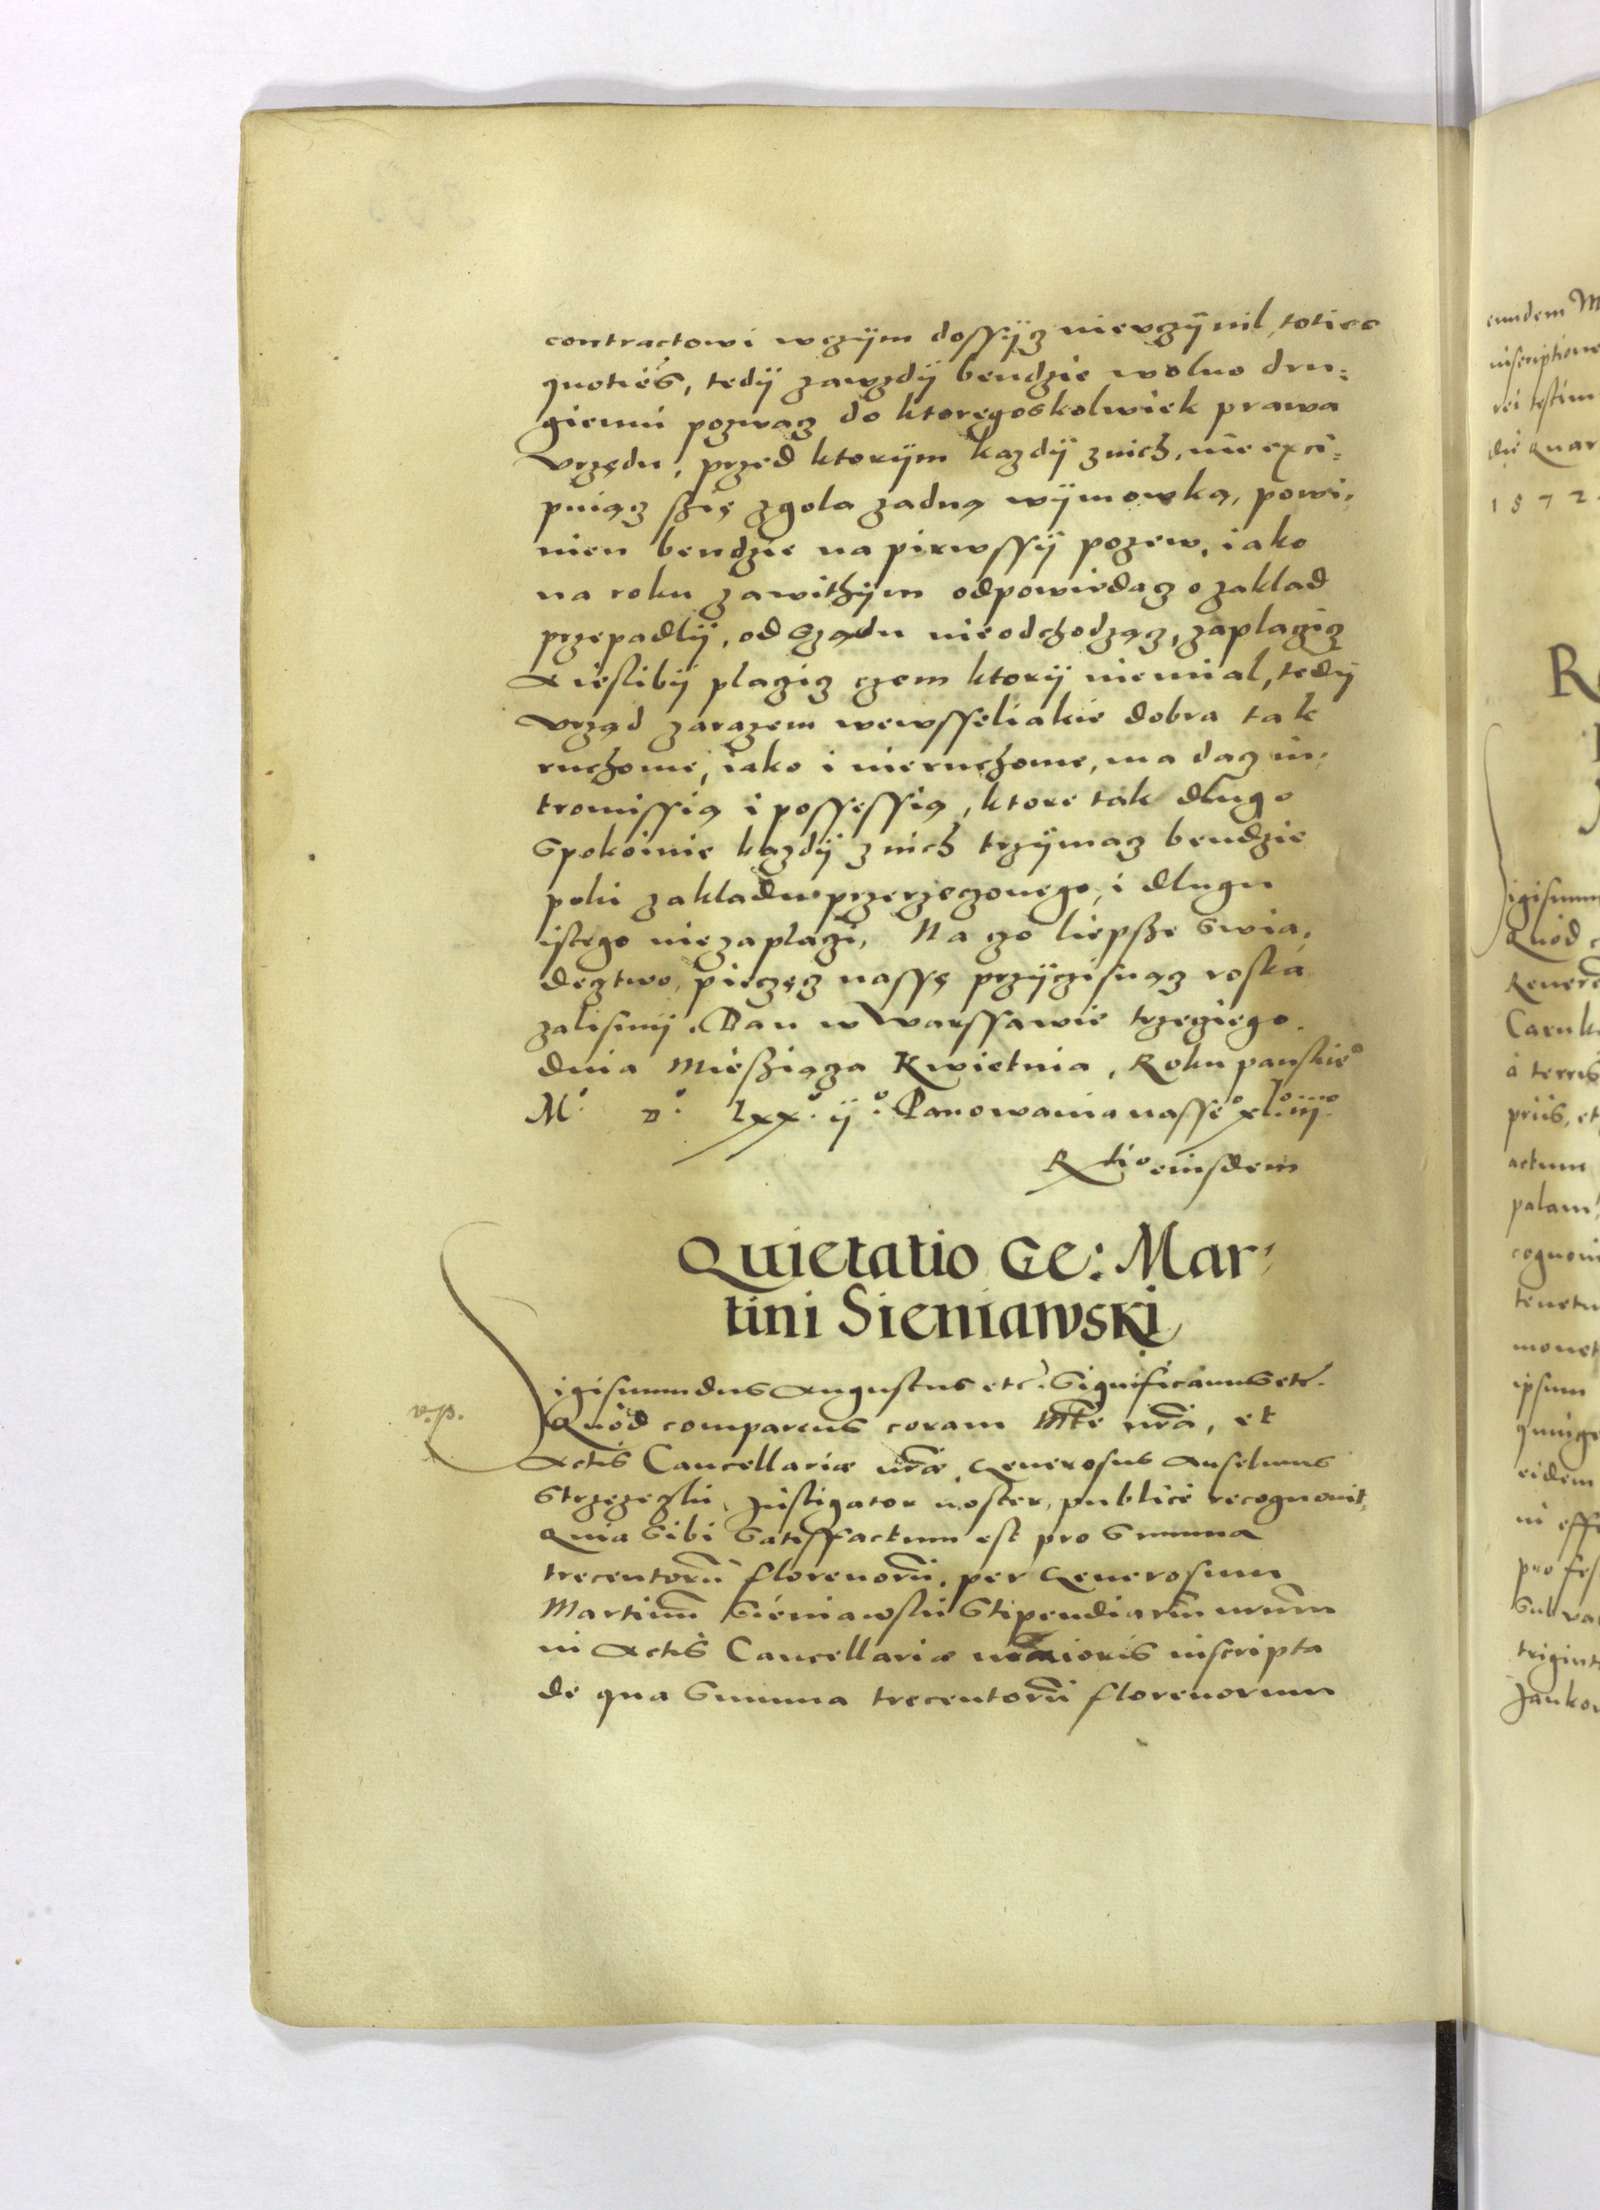 contractowi wczÿm dossÿcz nievczÿnil, toties
quoties, tedÿ zawzdÿ bendzie wolno dru:
giemu pozwacz do ktoregoskolwiek prawa
vrzędu, przed ktorÿm kazdÿ znich, nie exci:
puiącz szię zgola zadną wÿmowką, powi,
nien bendzie na pirwssÿ pozew, iako
na roku zawithÿm odpowiedacz o zaklad
przepadlÿ, od Sządu nieodchodzącz, zaplacicz
A ieslibÿ placicz czem ktorÿ niemial, tedÿ
vrząd zarazem wewsseliakie dobra tak
ruchome, iako i nieruchome, ma dacz in,
tromissią i possessią, ktore tak dlugo
Spokoinie kazdÿ znich trzÿmacz bendzie
poki zakladw przerzeczonego, i dlugu
istego niezaplaci, Na czo liepsze Swia,
decztwo, pieczęcz nassę przÿczisnącz roska
zalismÿ. Dan w Warssawie trzeciego
dnia Miesziącza Kwietnia, Roku panskieº
Mº. Dº. lxxº. ijº. Panowania nasseº xlº.iiiº.
Rtio eiusdem
Quietatio Ge: Mar,
tini Sieniawski
Sigismundus Augustus etc. Significamus etc.
v.p.
Quod comparens coram Mte nra, et
Actis Cancellariæ nræ, Generosus Anselmus
Strzezezski Instigator noster, publice recognouit,
Quia Sibi Satisffactum est pro Summa
trecentorū florenorū, per Generosum
Martinū Sieniawski Stipendiariū nrum
in Actis Cancellariæ maioris inscripta
de qua Summa trecentorū florenorum
eundem M
inscriptione
rei testim
die Quar
1572.
R
igismun
Quod c
Reueren
Carnk
à terris
priis, et
actum
palam
cognoui
tenetu
monet
ipsum
quinge
eidem
in effe
pro fes
Sub va
trigint
Jankow